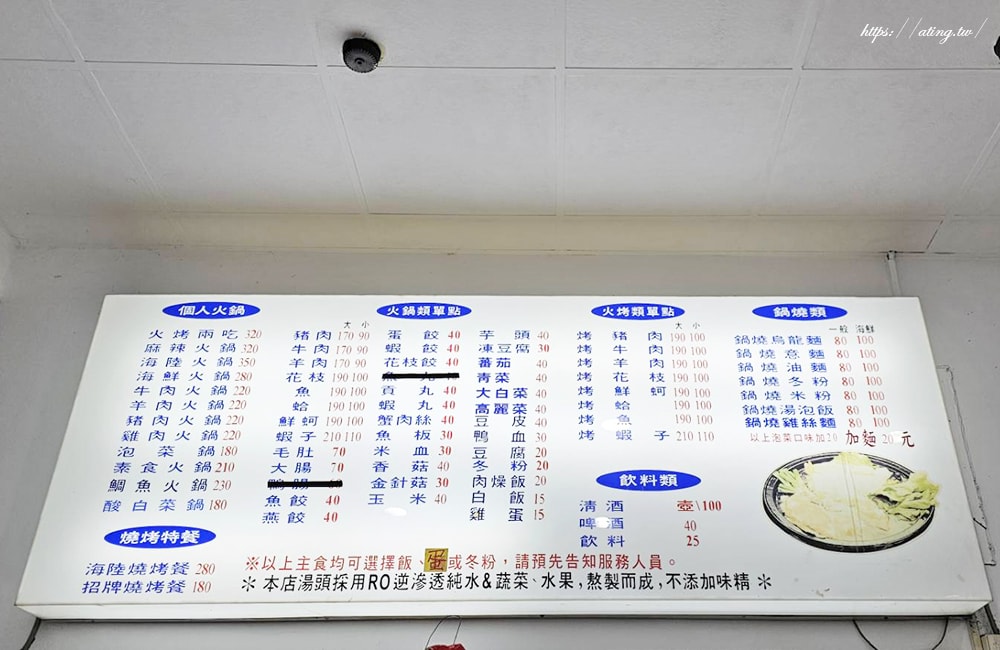 https://ating.tw/
個人火鍋
火烤兩吃 320
麻辣火鍋 320
海陸火鍋 350
海鮮火鍋 280
牛肉火鍋 220
羊肉火鍋 220
豬肉火鍋 220
雞肉火鍋 220
泡菜鍋 180
素食火鍋 210
鯛魚火鍋 230
酸白菜鍋 180
燒烤特餐
海陸燒烤餐 280
招牌燒烤餐 180
火鍋類單點
大 小
豬肉 170 90
牛肉 170 90
羊肉 170 90
花枝 190 100
魚 190 100
蛤 190 100
鮮蚵 190 100
蝦子 210 110
毛肚 70
大腸 70
魚餃 40
燕餃 40
蛋餃 40
蝦餃 40
花枝餃 40
貢丸 40
蝦丸 40
蟹肉絲 40
魚板 30
米血 30
香菇 40
金針菇 30
玉米 40
芋頭 40
凍豆腐 30
蕃茄 40
青菜 40
大白菜 40
高麗菜 40
豆皮 40
鴨血 30
豆腐 20
冬粉 20
肉燥飯 20
白飯 15
雞蛋 15
火烤類單點
大 小
烤豬肉 190 100
烤牛肉 190 100
烤羊肉 190 100
烤花枝 190 100
烤鮮蚵 190 100
烤蛤 190 100
烤魚 190 100
烤蝦子 210 110
飲料類
清酒 壺\100
啤酒 40
飲料 25
鍋燒類
一般 海鮮
鍋燒烏龍麵 80 100
鍋燒意麵 80 100
鍋燒油麵 80 100
鍋燒冬粉 80 100
鍋燒米粉 80 100
鍋燒湯泡飯 80 100
鍋燒雞絲麵 80 100
以上泡菜口味加20 加麵20元
※以上主食均可選擇飯、蛋或冬粉，請預先告知服務人員。
＊本店湯頭採用RO逆滲透純水&蔬菜、水果，熬製而成，不添加味精＊